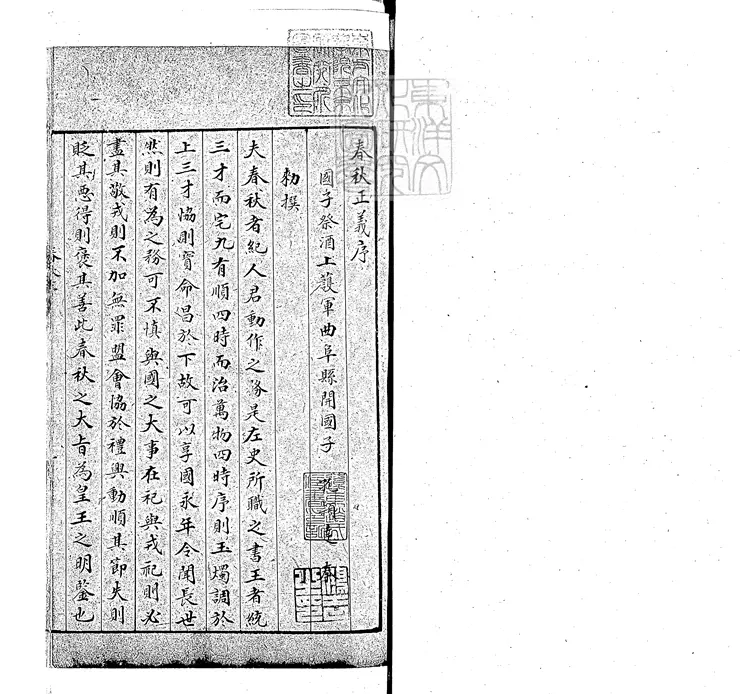 春秋正義序
國子祭酒上護軍曲阜縣開國子
勑撰
夫春秋者紀人君動作之務是左史所職之書王者統
三才而宅九有順四時而治萬物四時序則玉燭調於
上三才協則寳命昌於下故可以享國永年令聞長世
然則有為之務可不慎與國之大事在祀與戎祀則必
盡其敬戎則不加無罪盟會協於禮興動順其節失則
貶其惡得則褒其善此春秋之大旨為皇王之明鑒也